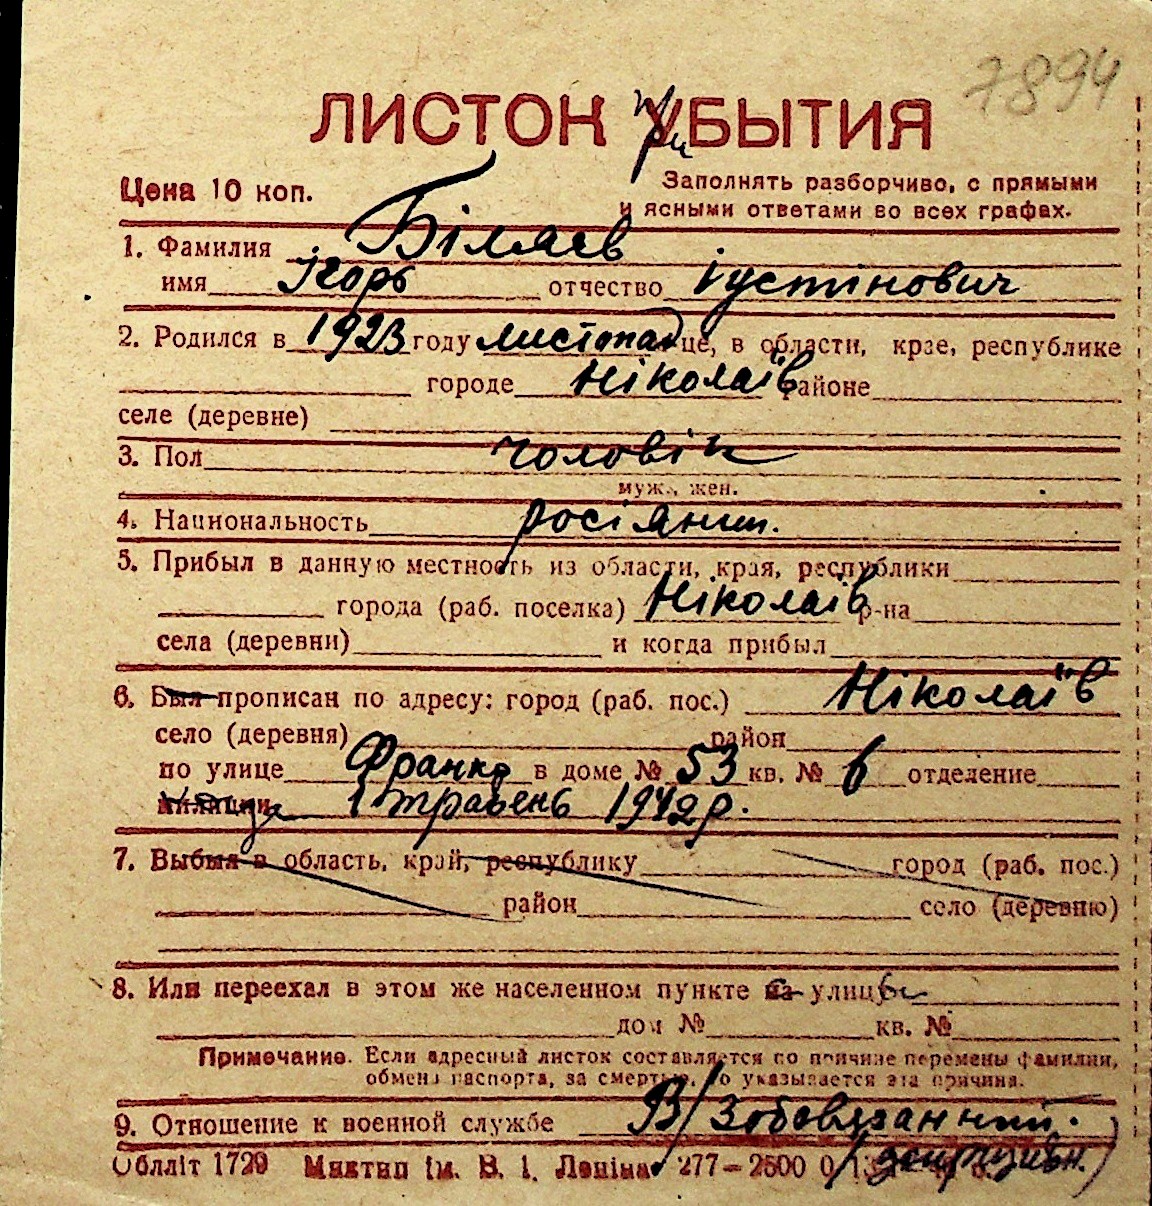 7894
ЛИСТОК УБЫТИЯ
При
Цена 10 коп.
Заполнять разборчиво, с прямыми
и ясными ответами во всех графах.
1. Фамилия Біляєв
имя Ігорь отчество Іустінович
2. Родился в 1923 году листопад це, в области, крае, республике
городе Ніколаїв районе
селе (деревне)
3. Пол чоловік
муж., жен.
4. Национальность росіянин.
5. Прибыл в данную местность из области, края, республики
города (раб. поселка) Ніколаїв р-на
села (деревни) и когда прибыл
6. Был прописан по адресу: город (раб. пос.) Ніколаїв
село (деревня) район
по улице Франко в доме № 53 кв. № 6 отделение
милиции 1 травень 1942 р.
7. Выбыл в область, край, республику город (раб. пос.)
район село (деревню)
8. Или переехал в этом же населенном пункте с улицы
дом № кв. №
Примечание. Если адресный листок составляется по причине перемены фамилии,
обмена паспорта, за смертью, то указывается эта причина.
9. Отношение к военной службе В/Зобовязанний.
Облліт 1729 Миктип ім. В. І. Леніна 277—2500